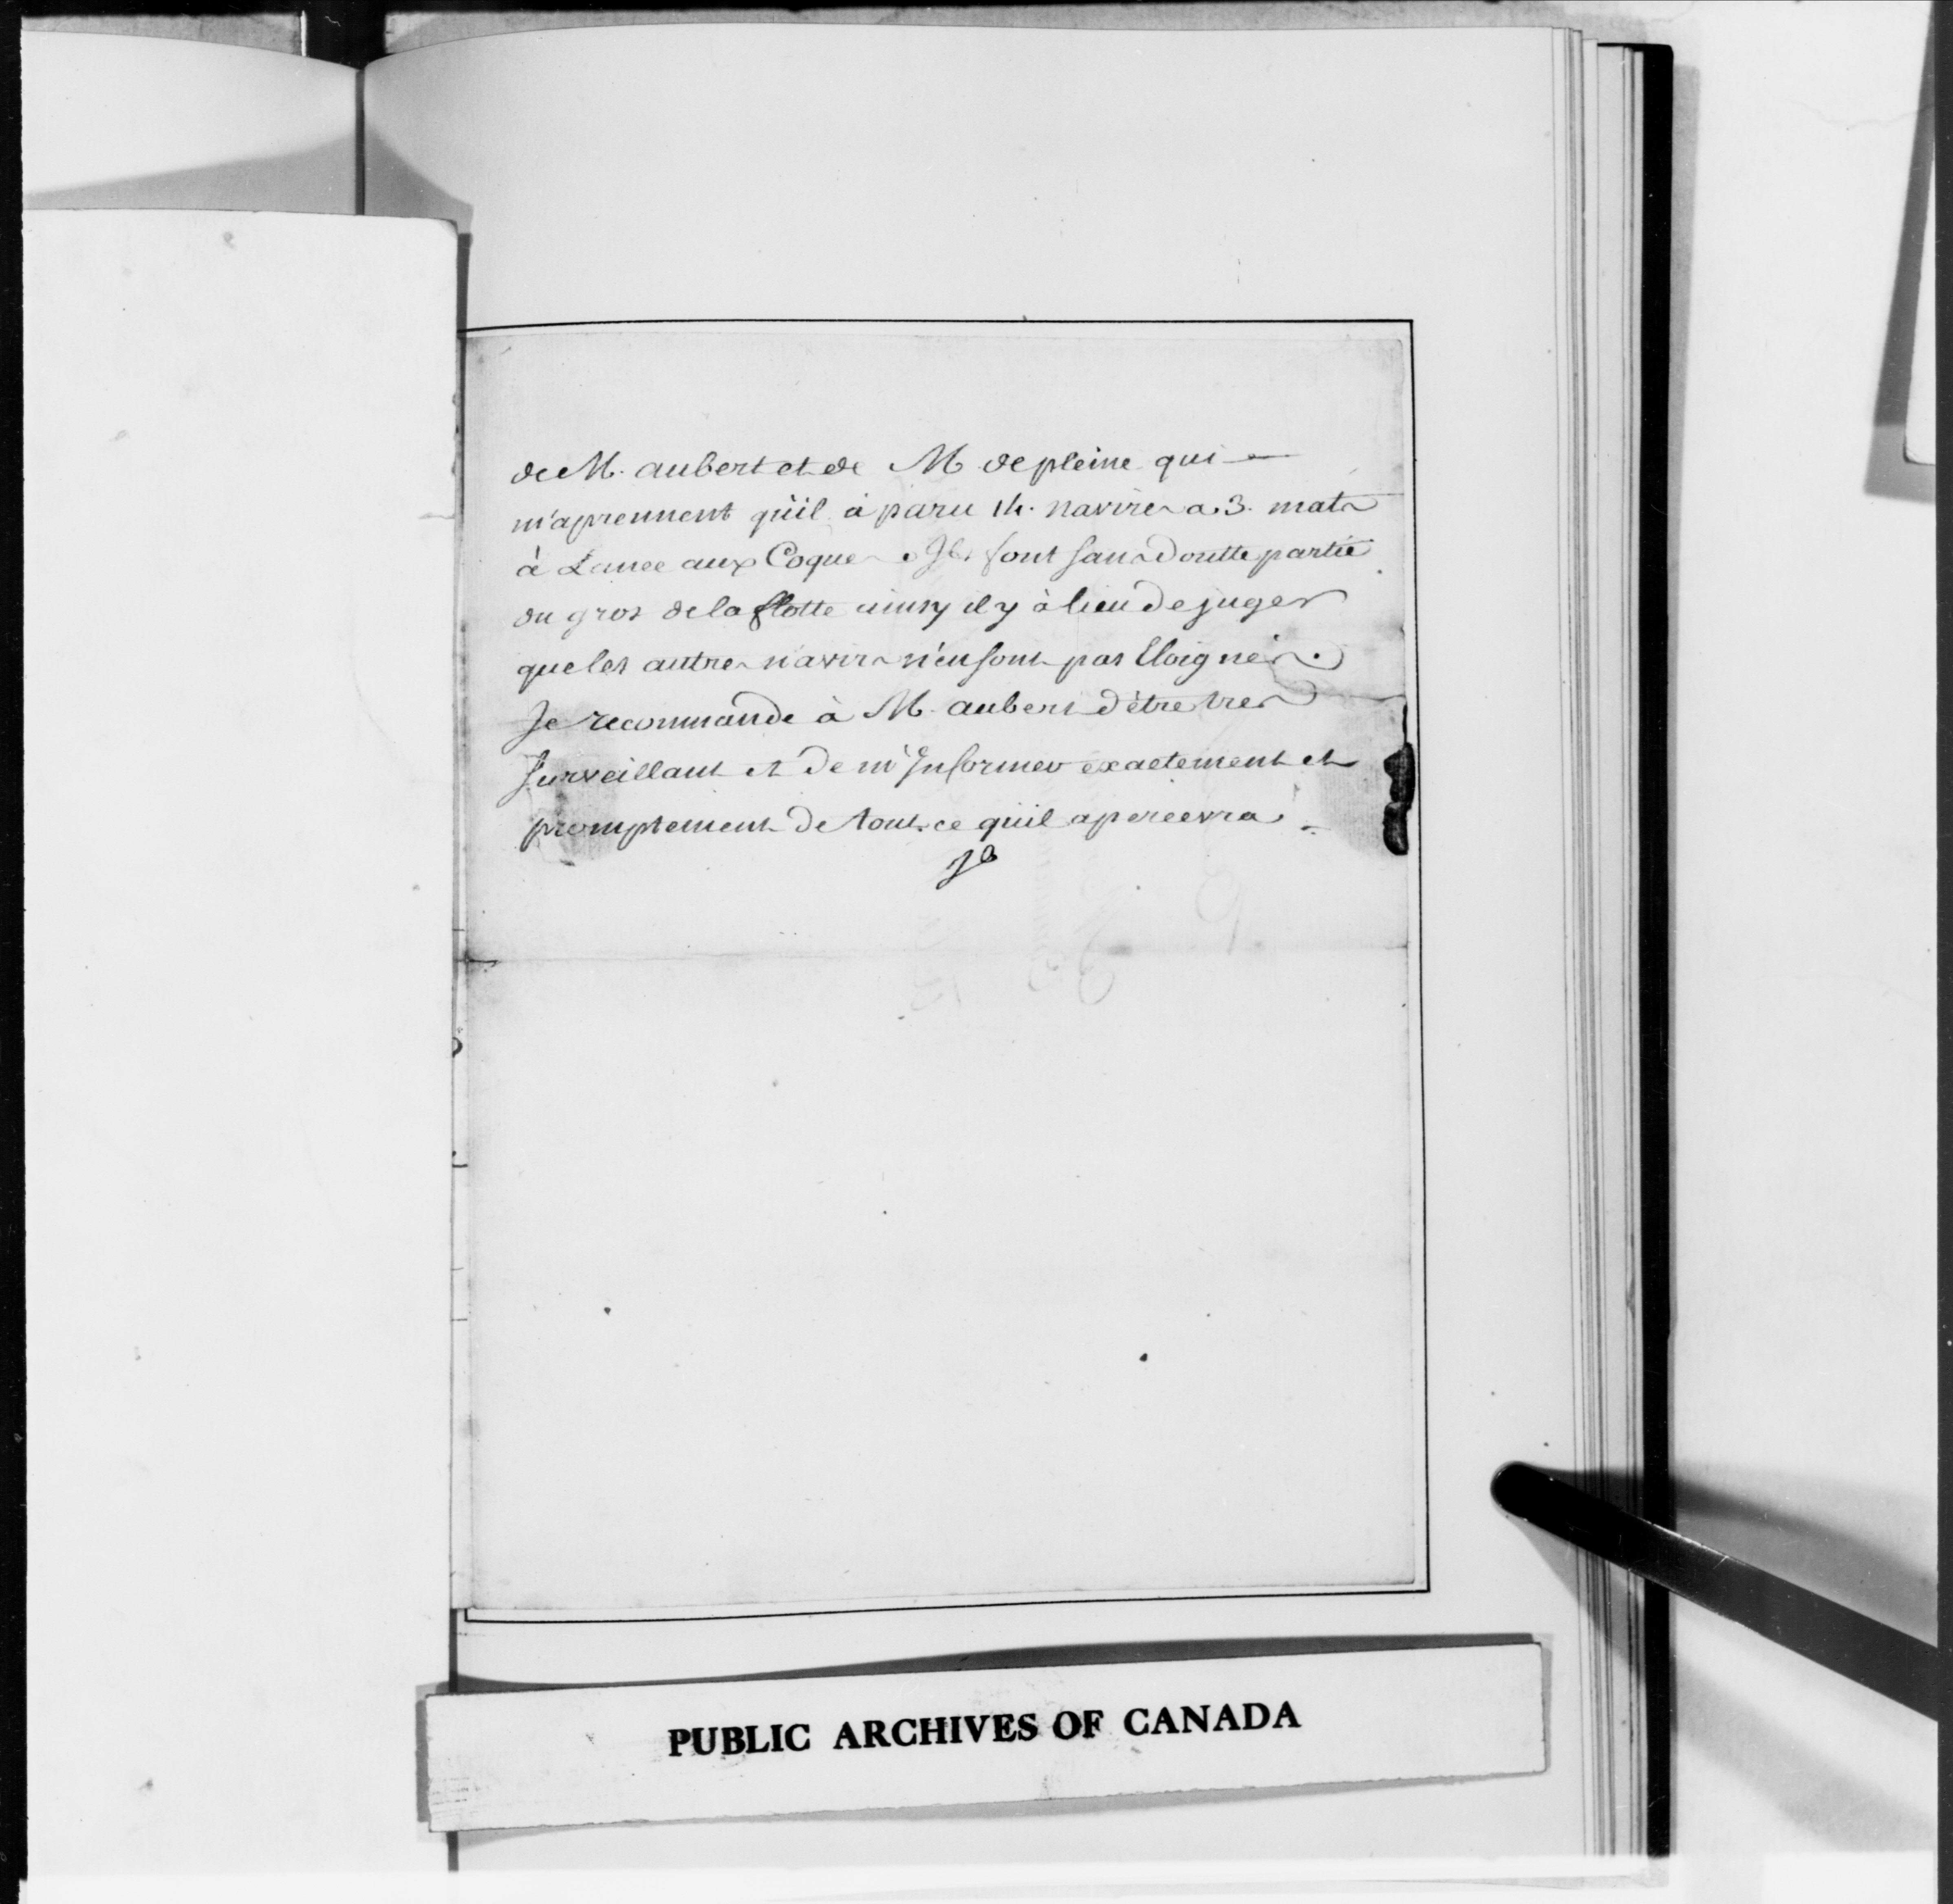 de M. aubert et de M de pleine qui
m'aprennent qu'il à paru 14. navires a 3. mats
à Lance aux Coques. Ils font sans doutte partie
du gros de la flotte ainsy il y à lieu de juger
que les autres navires n'en sont pas Eloignés.
Je recommande à M. aubert d'être tres
surveillant et de m'Informer exactement et
promptement de tout ce qu'il apercevra.
PUBLIC ARCHIVES OF CANADA